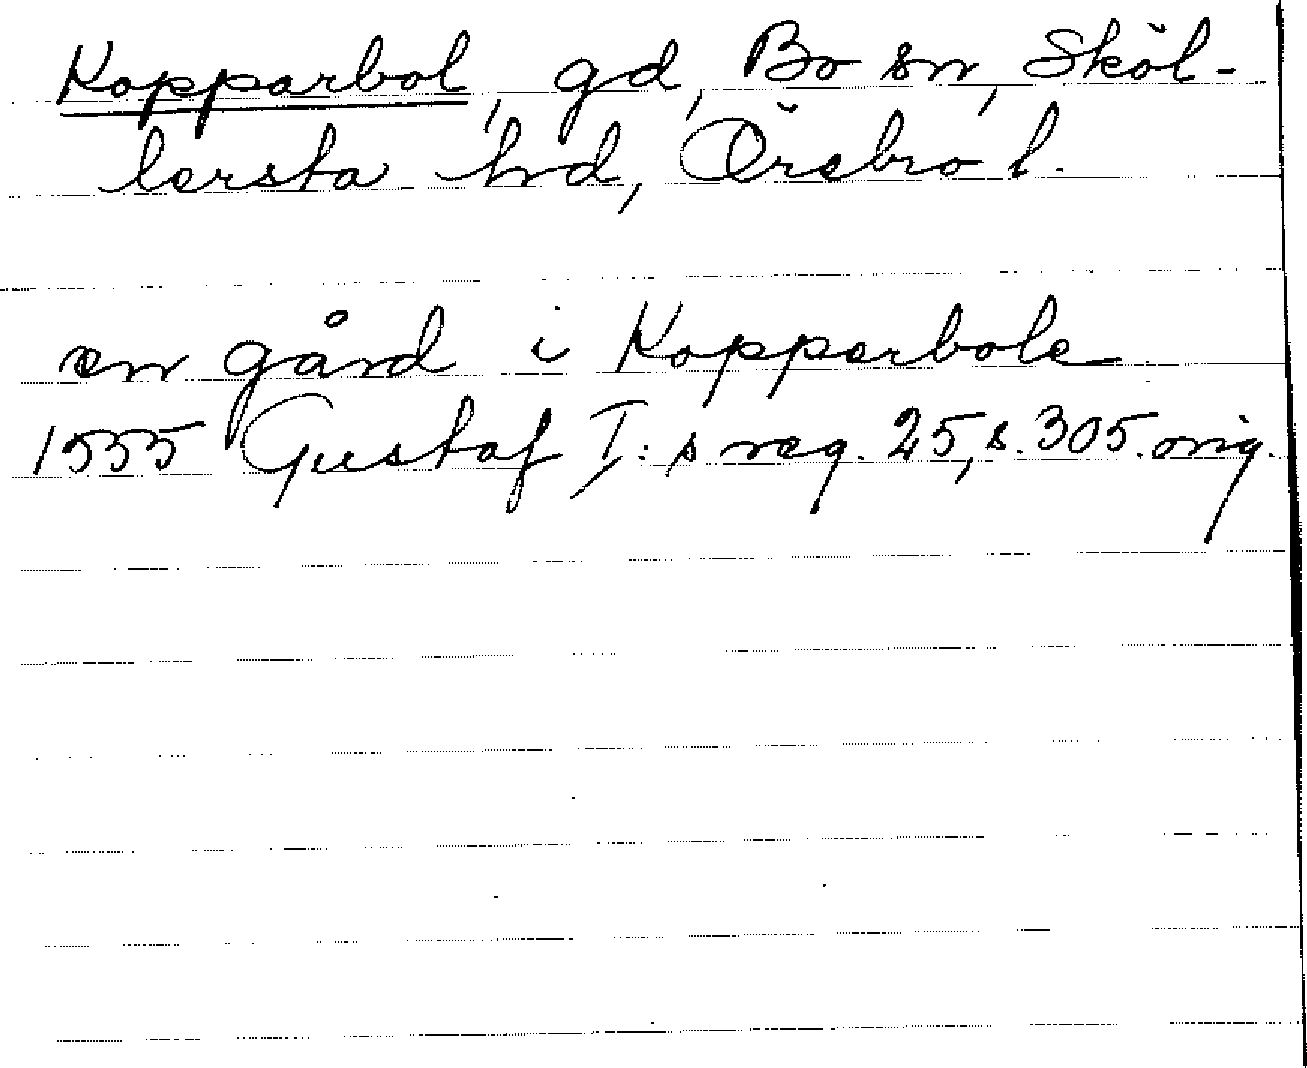 Kopparbol, gd, Bo sn, Sköl-
lersta hd, Örebro l.
en gård i Kopperbole
1555 Gustaf I:s reg. 25, s. 305. orig.